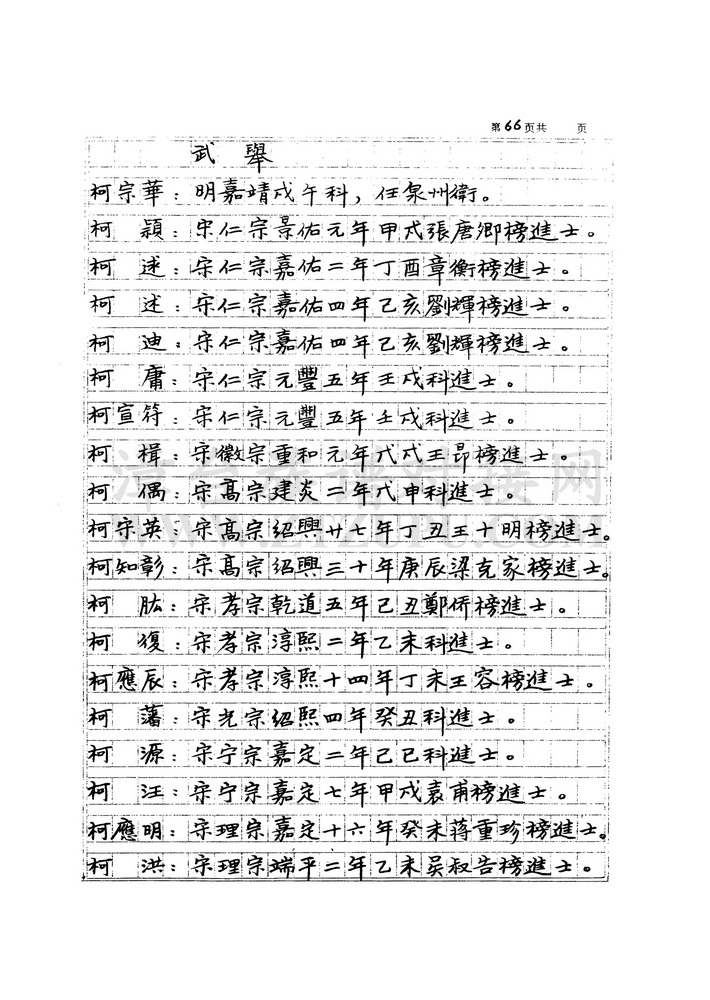 第66页共 页
武 舉
柯宗華：明嘉靖戍午科，任泉州衛。
柯 穎：宋仁宗景佑元年甲戍張唐卿榜進士。
柯 述：宋仁宗嘉佑二年丁酉章衡榜進士。
柯 述：宋仁宗嘉佑四年己亥劉輝榜進士。
柯 迪：宋仁宗嘉佑四年己亥劉輝榜進士。
柯 庸：宋仁宗元豐五年壬戍科進士。
柯宣符：宋仁宗元豐五年壬戍科進士。
柯 楫：宋徽宗重和元年戊戍王昂榜進士。
柯 偶：宋髙宗建炎二年戊申科進士。
柯宗英：宋髙宗紹興廿七年丁丑王十明榜進士。
柯知彰：宋髙宗紹興三十年庚辰梁克家榜進士。
柯 肱：宋孝宗乾道五年己丑鄭侨榜進士。
柯 復：宋孝宗淳熙二年乙未科進士。
柯應辰：宋孝宗淳熙十四年丁未王容榜進士。
柯 藩：宋光宗紹熙四年癸丑科進士。
柯 源：宋宁宗嘉定二年己巳科進士。
柯 汪：宋宁宗嘉定七年甲戍袁甫榜進士。
柯應明：宋理宗嘉定十六年癸未蒋重珍榜進士。
柯 洪：宋理宗端平二年乙未吴叔告榜進士。